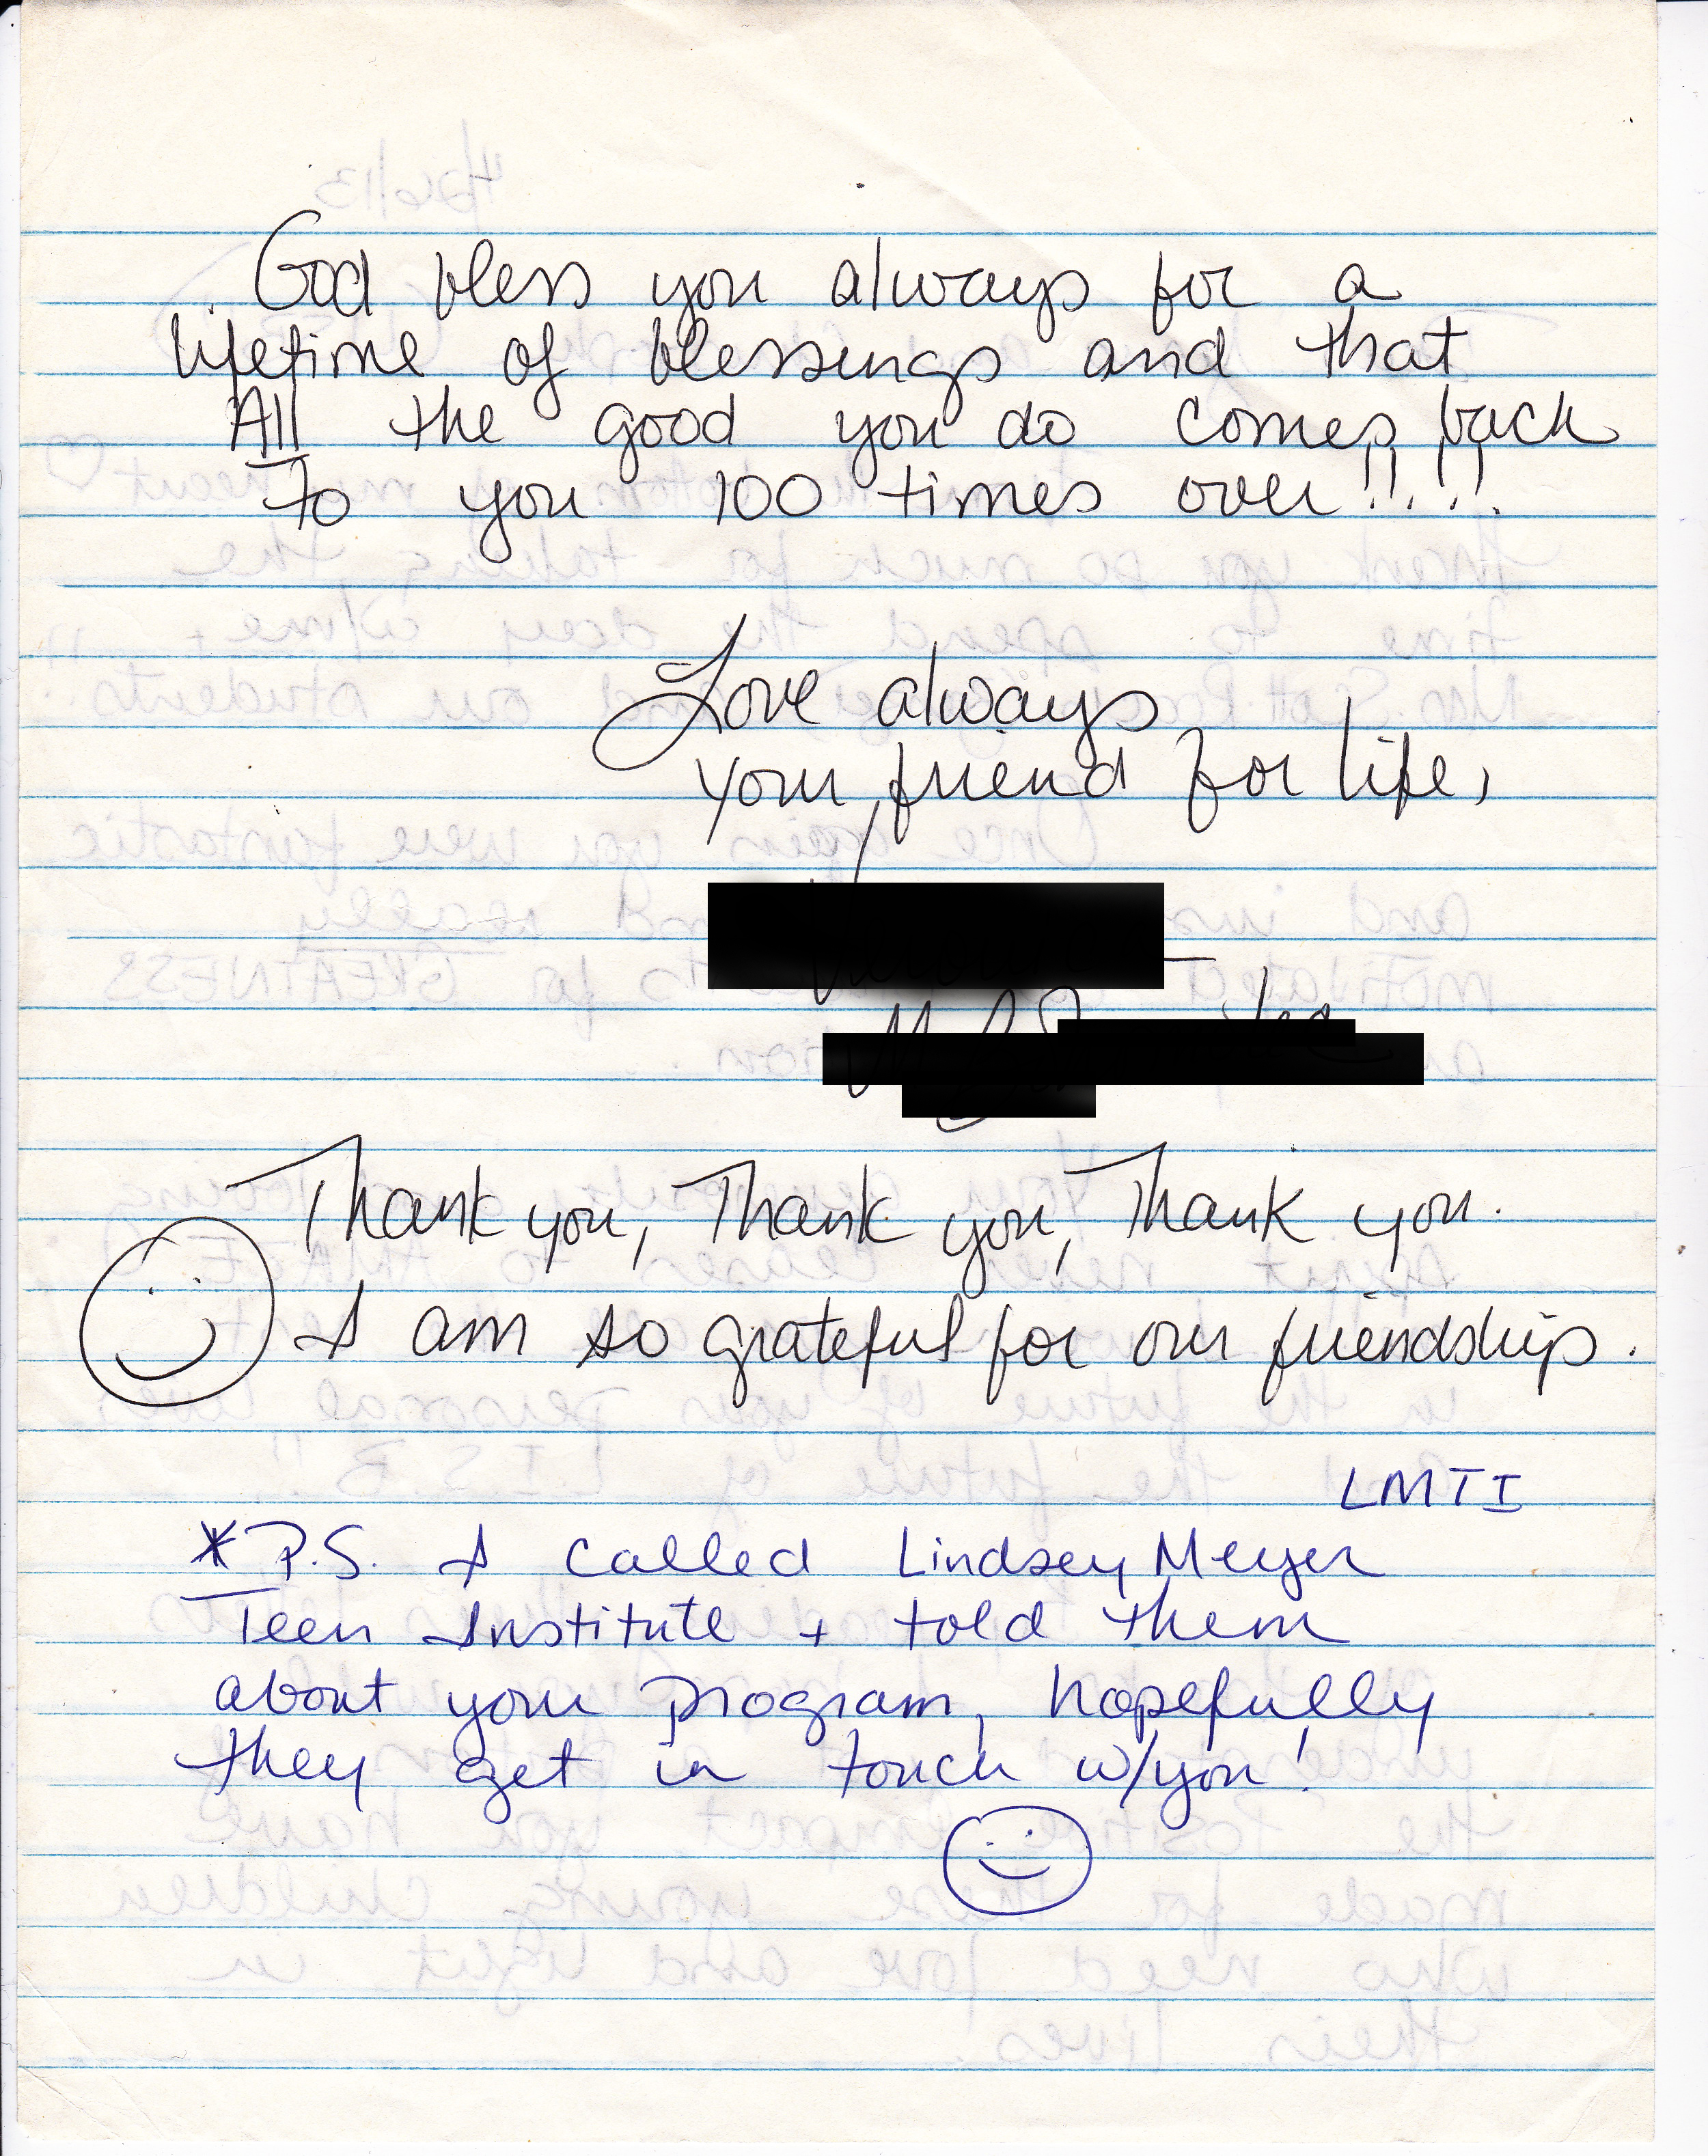 God bless you always for a
lifetime of blessings and that
All the good you do comes back
to you 100 times over!!!!
Love always
your friend for life,
Thank you, Thank you, Thank you.
I am so grateful for our friendship.
LMTI
*P.S. I called Lindsey Meyer
Teen Institute + told them
about your program, hopefully
they get in touch w/you!